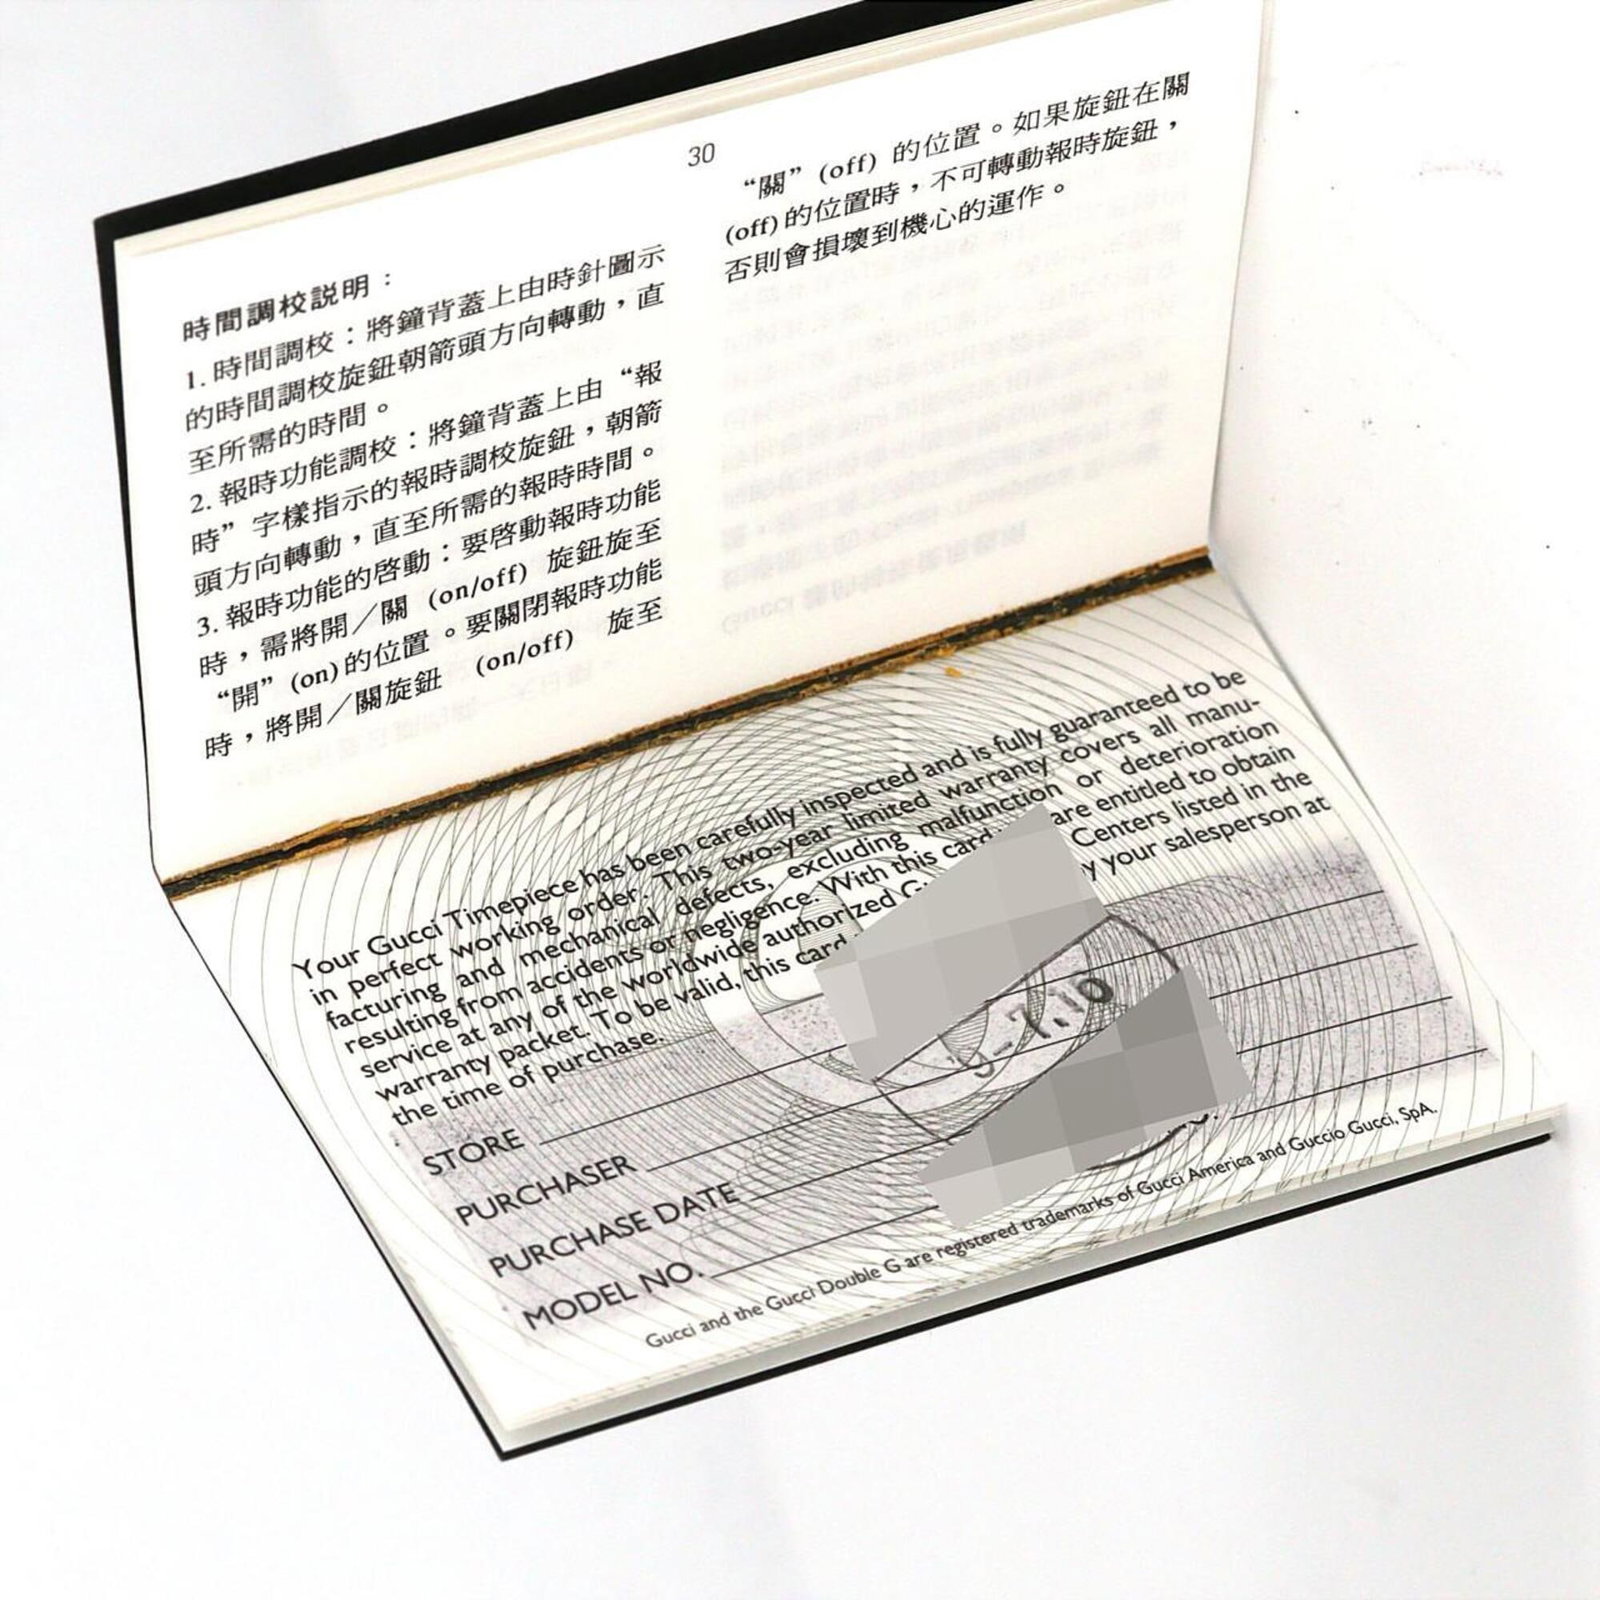 30
時間調校説明：
1. 時間調校：將鐘背蓋上由時針圖示
的時間調校旋鈕朝箭頭方向轉動，直
至所需的時間。
2. 報時功能調校：將鐘背蓋上由“報
時”字樣指示的報時調校旋鈕，朝箭
頭方向轉動，直至所需的報時時間。
3. 報時功能的啓動：要啓動報時功能
時，需將開／關 (on/off) 旋鈕旋至
“開” (on)的位置。要關閉報時功能
時，將開／關旋鈕 (on/off) 旋至
“關” (off) 的位置。如果旋鈕在關
(off)的位置時，不可轉動報時旋鈕，
否則會損壞到機心的運作。
Your Gucci Timepiece has been carefully inspected and is fully guaranteed to be
in perfect working order. This two-year limited warranty covers all manu-
facturing and mechanical defects, excluding malfunction or deterioration
resulting from accidents or negligence. With this card are entitled to obtain
service at any of the worldwide authorized Centers listed in the
warranty packet. To be valid, this card your salesperson at
the time of purchase.
STORE
PURCHASER
PURCHASE DATE
MODEL NO.
Gucci and the Gucci Double G are registered trademarks of Gucci America and Guccio Gucci, SpA.